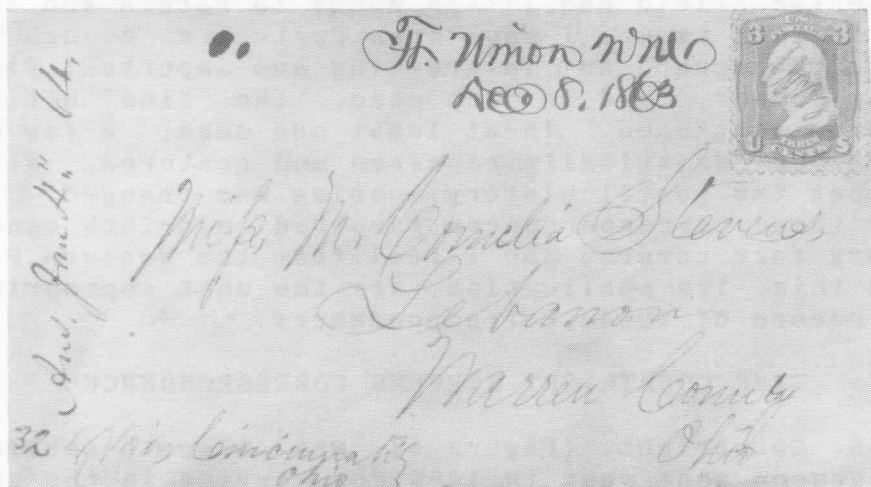 Ft. Union N.M.
Dec 8. 1863
3 3
U S
Miss M. Cornelia Stevens,
Lebanon
Warren County
Ohio
32
Via Cincinnati
Ohio
64.